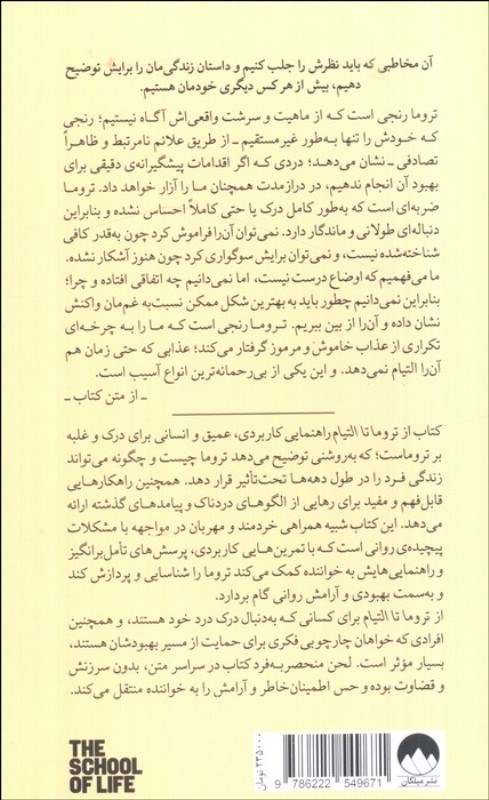 آن مخاطبی که باید نظرش را جلب کنیم و داستان زندگی‌مان را برایش توضیح
دهیم، بیش از هر کس دیگری خودمان هستیم.
تروما رنجی است که از ماهیت و سرشت واقعی‌اش آگاه نیستیم؛ رنجی
که خودش را تنها به‌طور غیرمستقیم ـ از طریق علائم نامرتبط و ظاهراً
تصادفی ـ نشان می‌دهد؛ دردی که اگر اقدامات پیشگیرانه‌ی دقیقی برای
بهبود آن انجام ندهیم، در درازمدت همچنان ما را آزار خواهد داد. تروما
ضربه‌ای است که به‌طور کامل درک یا حتی کاملاً احساس نشده و بنابراین
دنباله‌ای طولانی و ماندگار دارد. نمی‌توان آن‌را فراموش کرد چون به‌قدر کافی
شناخته‌شده نیست، و نمی‌توان برایش سوگواری کرد چون هنوز آشکار نشده.
ما می‌فهمیم که اوضاع درست نیست، اما نمی‌دانیم چه اتفاقی افتاده و چرا؛
بنابراین نمی‌دانیم چطور باید به بهترین شکل ممکن نسبت‌به غم‌مان واکنش
نشان داده و آن‌را از بین ببریم. تروما رنجی است که ما را به چرخه‌ای
تکراری از عذاب خاموش و مرموز گرفتار می‌کند؛ عذابی که حتی زمان هم
آن‌را التیام نمی‌دهد. و این یکی از بی‌رحمانه‌ترین انواع آسیب است.
ـ از متن کتاب ـ
کتاب از تروما تا التیام راهنمایی کاربردی، عمیق و انسانی برای درک و غلبه
بر تروماست؛ که به‌روشنی توضیح می‌دهد تروما چیست و چگونه می‌تواند
زندگی فرد را در طول دهه‌ها تحت‌تأثیر قرار دهد. همچنین راهکارهایی
قابل‌فهم و مفید برای رهایی از الگوهای دردناک و پیامدهای گذشته ارائه
می‌دهد. این کتاب شبیه همراهی خردمند و مهربان در مواجهه با مشکلات
پیچیده‌ی روانی است که با تمرین‌هایی کاربردی، پرسش‌های تأمل‌برانگیز
و راهنمایی‌هایش به خواننده کمک می‌کند تروما را شناسایی و پردازش کند
و به‌سمت بهبودی و آرامش روانی گام بردارد.
از تروما تا التیام برای کسانی که به‌دنبال درک درد خود هستند، و همچنین
افرادی که خواهان چارچوبی فکری برای حمایت از مسیر بهبودشان هستند،
بسیار مؤثر است. لحن منحصربه‌فرد کتاب در سراسر متن، بدون سرزنش
و قضاوت بوده و حس اطمینان‌خاطر و آرامش را به خواننده منتقل می‌کند.
THE
SCHOOL
OF LIFE
۲۳۵۰۰۰ تومان
9 786222 549671
نشر میلکان